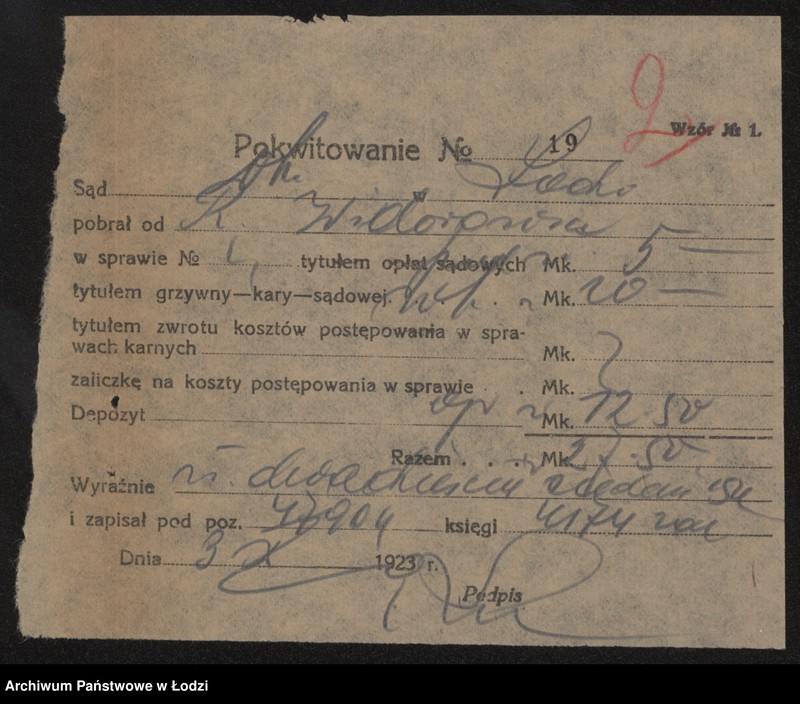 2
Wzór № 1.
Pokwitowanie № 19
Sąd Okr. w Łodzi
pobrał od K.
w sprawie № tytułem opłat sądowych Mk. 5 —
tytułem grzywny—kary—sądowej Mk. 10 —
tytułem zwrotu kosztów postępowania w spra-
wach karnych Mk.
zaliczkę na koszty postępowania w sprawie . Mk.
Depozyt Mk. 12.50
Razem . . . Mk. 27.50
Wyraźnie dwadzieścia siedem
i zapisał pod poz. księgi
Dnia 3 X 1923 r.
Podpis
Archiwum Państwowe w Łodzi